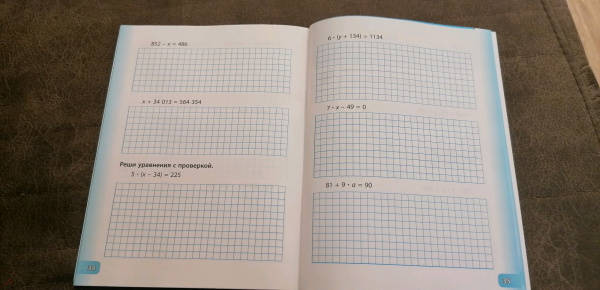 852 − x = 486
x + 34 013 = 564 354
Реши уравнения с проверкой.
5 · (x − 34) = 225
6 · (y + 134) = 1134
7 · x − 49 = 0
81 + 9 · a = 90